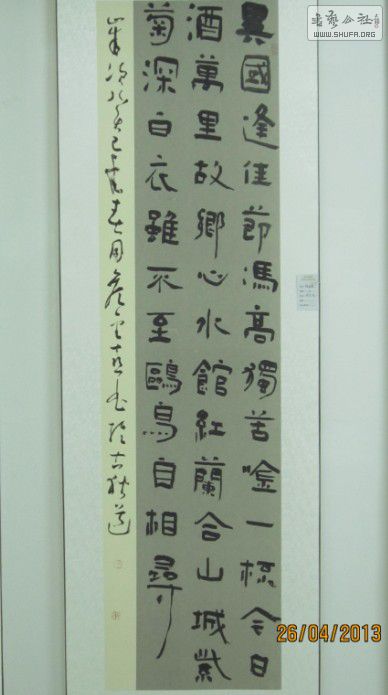 異國逢佳節馮高獨苦唫一杯今日
酒萬里故鄉心水館紅蘭合山城紫
菊深白衣雖不至鷗鳥自相尋
歲次癸巳 古狄道
書藝公社
WWW.SHUFA.ORG
26/04/2013